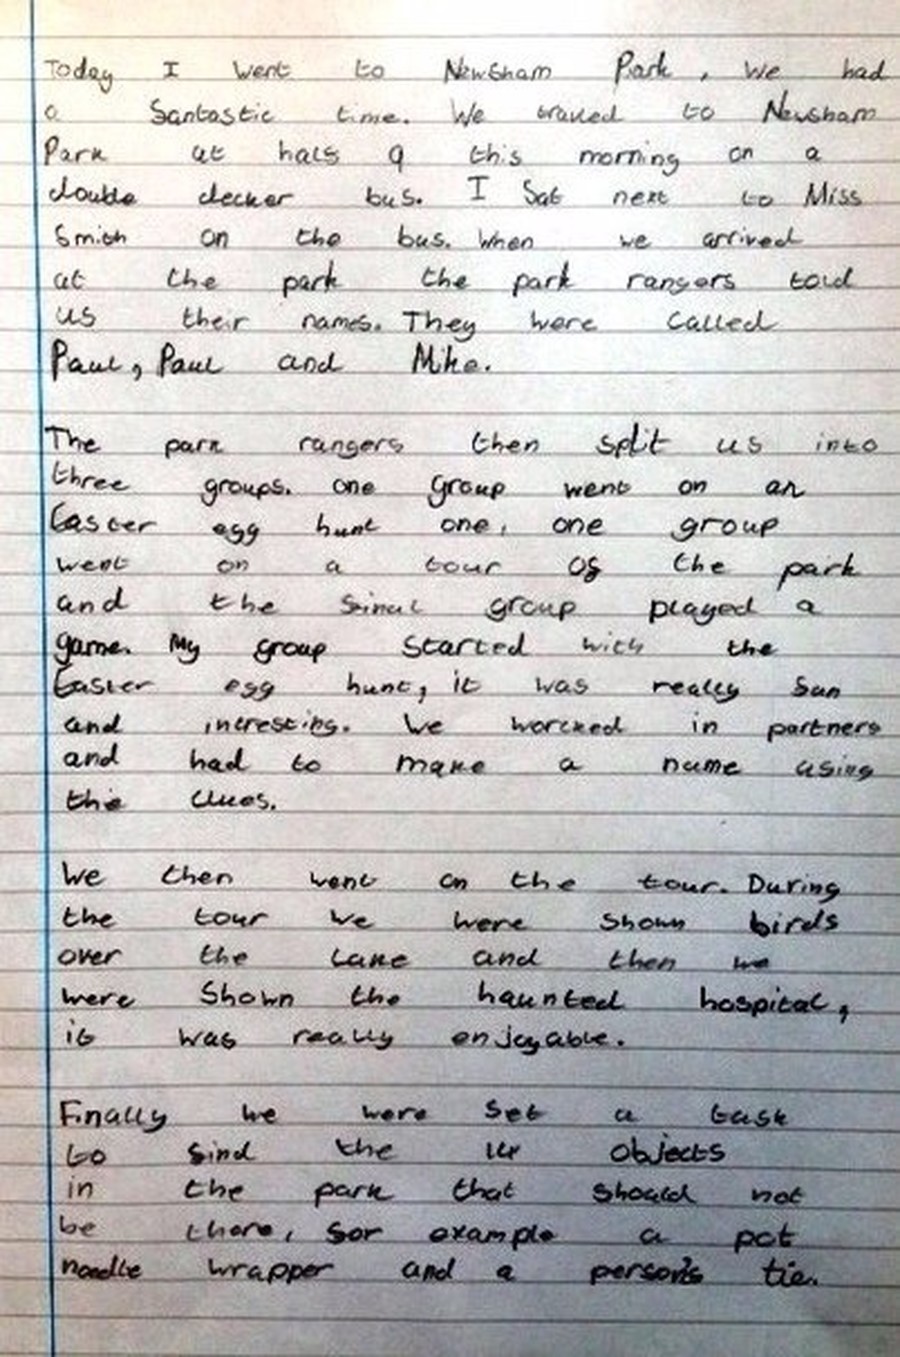 Today I went to Newsham Park, we had
a fantastic time. We traved to Newsham
Park at half 9 this morning on a
double decker bus. I sat next to Miss
Smith on the bus. When we arrived
at the park the park rangers told
us their names. They were called
Paul, Paul and Mike.
The park rangers then split us into
three groups. one group went on an
Easter egg hunt one, one group
went on a tour of the park
and the final group played a
game. My group started with the
Easter egg hunt, it was really fun
and intresting. We worcked in partners
and had to make a name using
the clues.
We then went on the tour. During
the tour we were shown birds
over the lake and then we
were shown the haunted hospital,
it was really enjoyable.
Finally we were set a task
to find the objects
in the park that should not
be there, for example a pot
noodle wrapper and a person's tie.